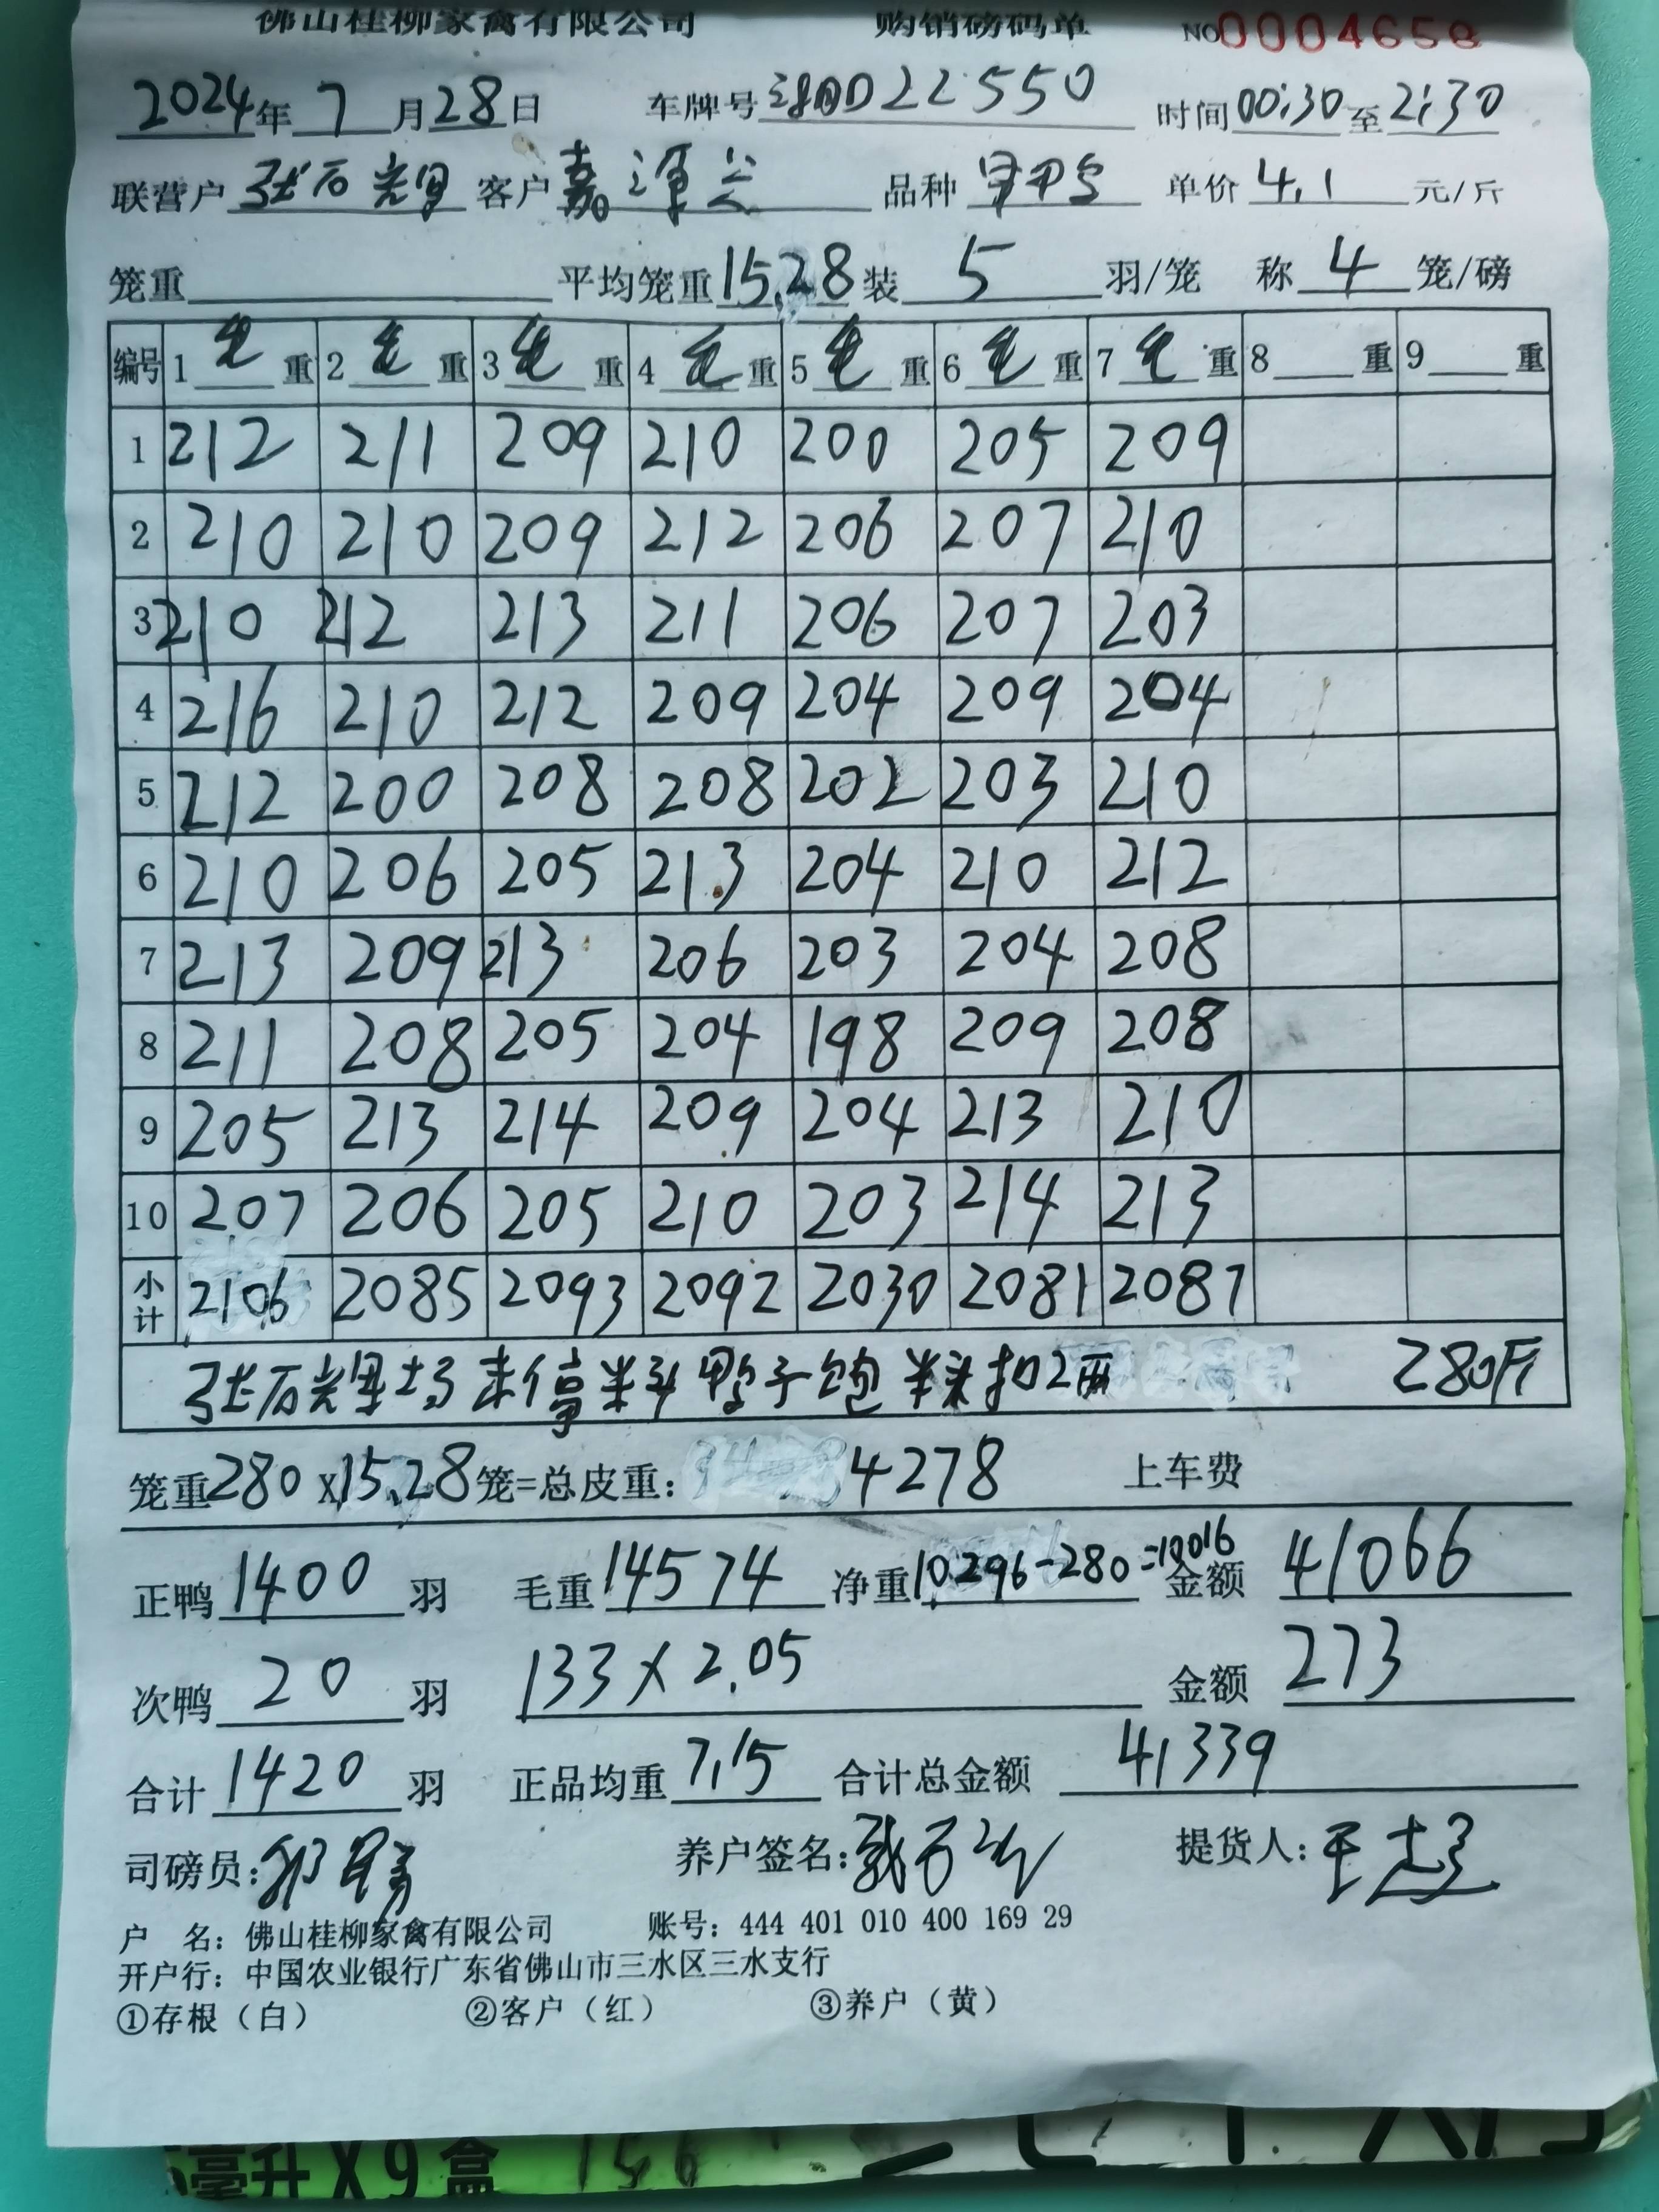 佛山桂柳家禽有限公司 购销磅码单 NO 0004658
2024年 7 月 28 日 车牌号 D22550 时间 00:30 至 2:30
联营户 张石 客户 嘉 品种 单价 4.1 元/斤
笼重 平均笼重 15.28 装 5 羽/笼 称 4 笼/磅
编号 1 毛 重 2 毛 重 3 毛 重 4 毛 重 5 毛 重 6 毛 重 7 毛 重 8 重 9 重
1 212 211 209 210 200 205 209
2 210 210 209 212 206 207 210
3 210 212 213 211 206 207 203
4 216 210 212 209 204 209 204
5 212 200 208 208 202 203 210
6 210 206 205 213 204 210 212
7 213 209 213 206 203 204 208
8 211 208 205 204 198 209 208
9 205 213 214 209 204 213 210
10 207 206 205 210 203 214 213
小计 2106 2085 2093 2092 2030 2081 2087
张石 场未停料鸭子饱料扣2两 280斤
笼重 280 x 15.28 笼=总皮重: 4278 上车费
正鸭 1400 羽 毛重 14574 净重 10296-280=10016 金额 41066
次鸭 20 羽 133 x 2.05 金额 273
合计 1420 羽 正品均重 7.15 合计总金额 41339
司磅员: 养户签名: 提货人:
户 名: 佛山桂柳家禽有限公司 账号: 444 401 010 400 169 29
开户行: 中国农业银行广东省佛山市三水区三水支行
①存根（白） ②客户（红） ③养户（黄）
毫升X9盒 156